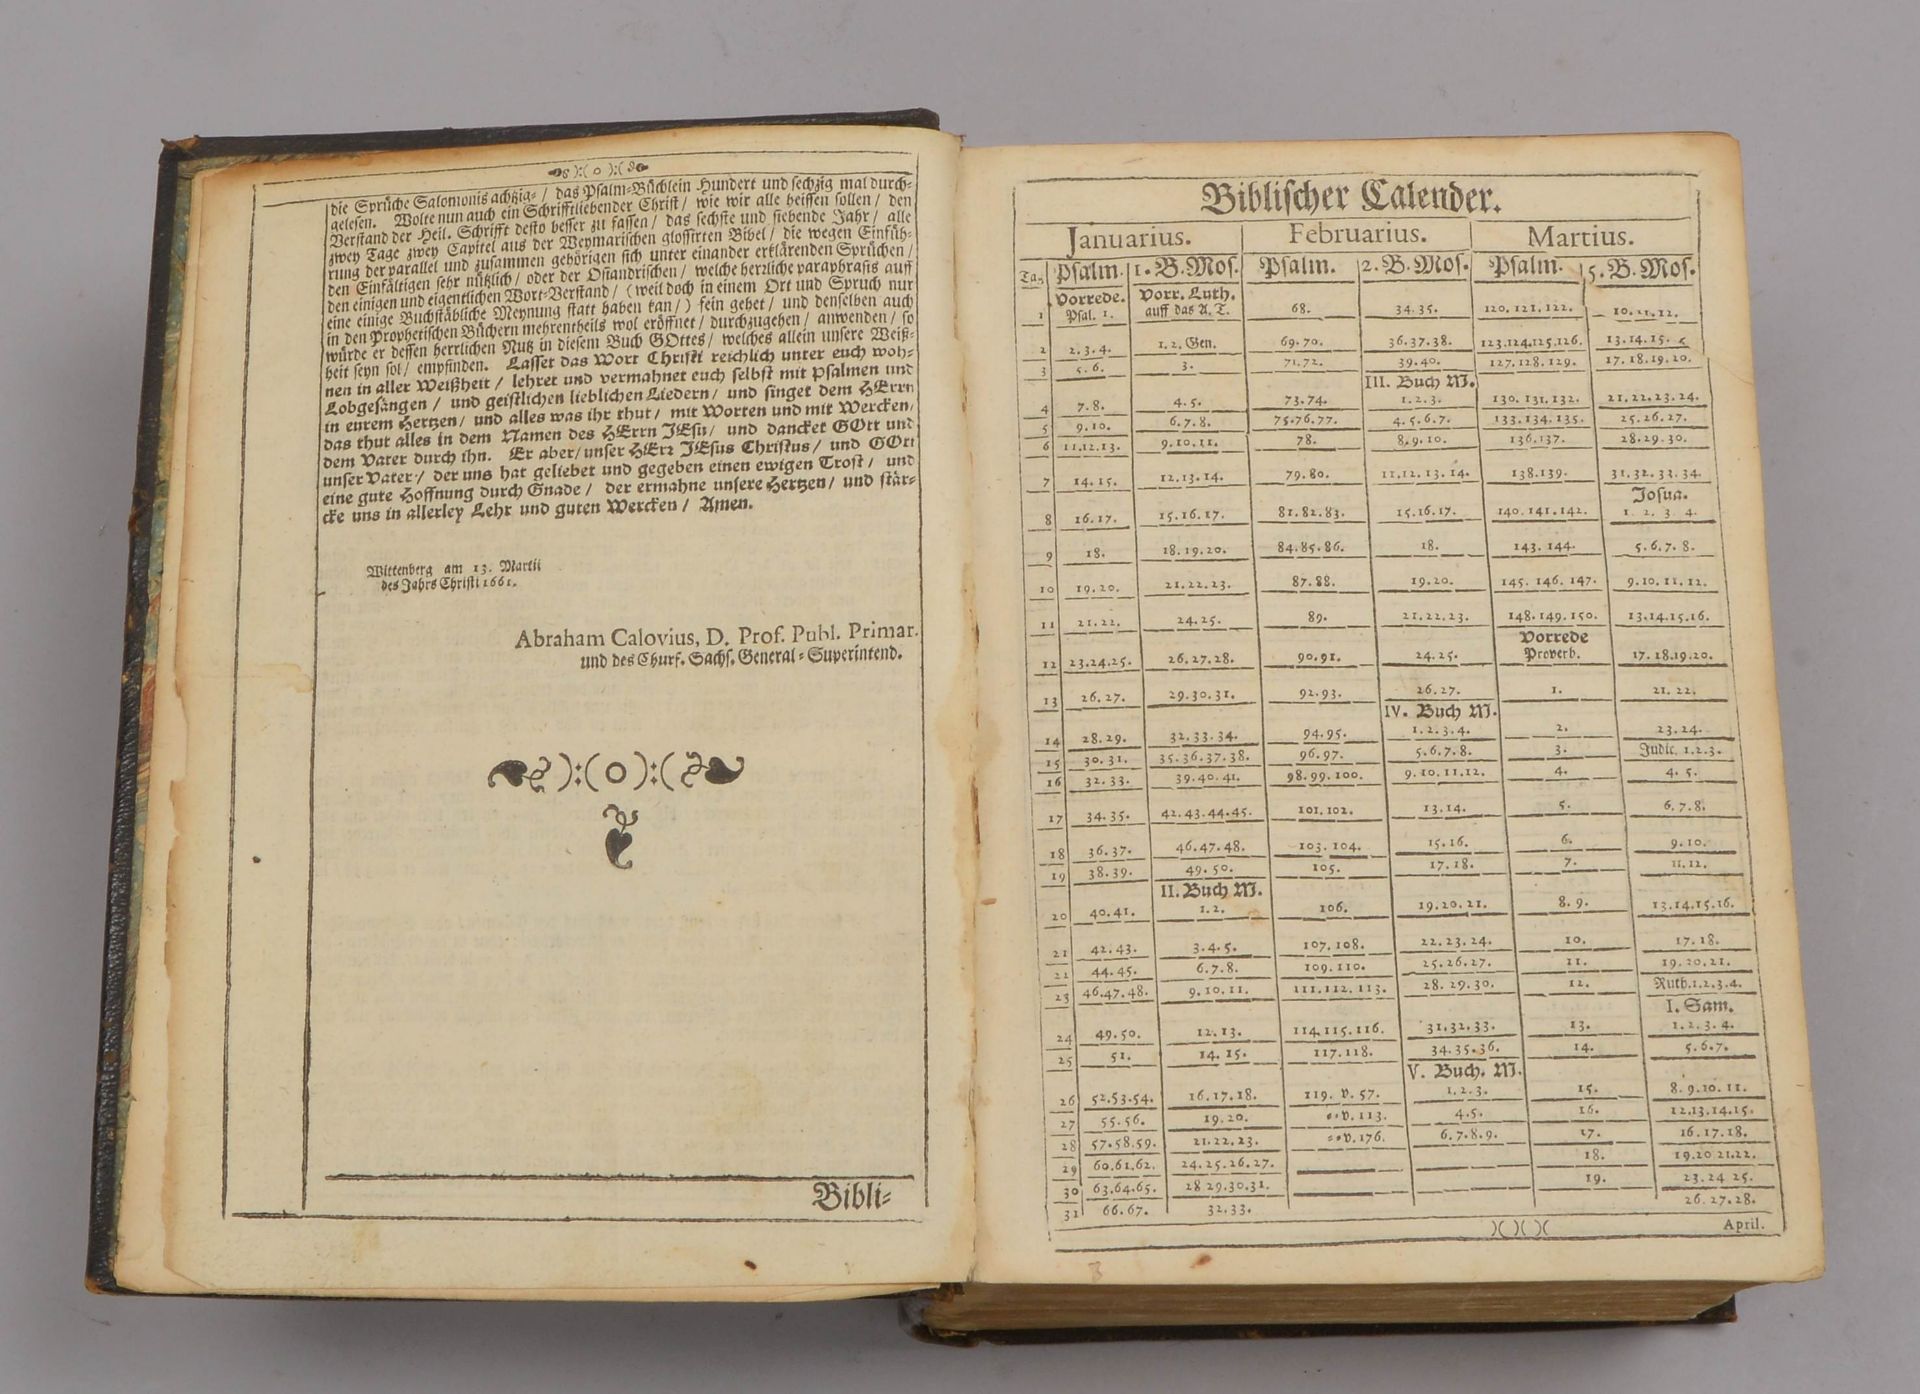 ):( o ):(
die Sprüche Salomonis achtzig- / das Psalm-Büchlein Hundert und sechzig mal durch-
gelesen. Wolte nun auch ein Schrifftliebender Christ / wie wir alle heissen sollen / den
Verstand der Heil. Schrifft desto besser zu fassen / das sechste und siebende Jahr / alle
zwey Tage zwey Capitel aus der Weymarischen glossirten Bibel / die wegen Einfüh-
rung der parallel und zusammen gehörigen sich unter einander erklärenden Sprüchen /
den Einfältigen sehr nützlich / oder der Osiandrischen / welche herrliche paraphrasis auff
den einigen und eigentlichen Wort-Verstand / (weil doch in einem Ort und Spruch nur
eine einige Buchstäbliche Meynung statt haben kan /) fein gehet / und denselben auch
in den Prophetischen Büchern mehrentheils wol eröffnet / durchzugehen / anwenden / so
würde er dessen herrlichen Nutz in diesem Buch GOttes / welches allein unsere Weiß-
heit seyn sol / empfinden. Lasset das Wort Christi reichlich unter euch woh-
nen in aller Weißheit / lehret und vermahnet euch selbst mit Psalmen und
Lobgesängen / und geistlichen lieblichen Liedern / und singet dem HErrn
in eurem Hertzen / und alles was ihr thut / mit Worten und mit Wercken /
das thut alles in dem Namen des HErrn JEsu / und dancket GOtt und
dem Vater durch ihn. Er aber / unser HErr JEsus Christus / und GOtt
unser Vater / der uns hat geliebet und gegeben einen ewigen Trost / und
eine gute Hoffnung durch Gnade / der ermahne unsere Hertzen / und stär-
cke uns in allerley Lehr und guten Wercken / Amen.
Wittenberg am 13. Martii
des Jahrs Christi 1661.
Abraham Calovius, D. Prof. Publ. Primar.
und des Churf. Sächs. General-Superintend.
):( o ):(
Bibli-
Biblischer Calender.
Januarius. Februarius. Martius.
Tag Psalm. 1. B. Mos. Psalm. 2. B. Mos. Psalm. 5. B. Mos.
Vorrede. Vorr. Luth.
1 Psal. 1. auff das A. T. 68. 34. 35. 120. 121. 122. 10. 11. 12.
2 2. 3. 4. 1. 2. Gen. 69. 70. 36. 37. 38. 123. 124. 125. 126. 13. 14. 15.
3 5. 6. 3. 71. 72. 39. 40. 127. 128. 129. 17. 18. 19. 20.
III. Buch M.
4 7. 8. 4. 5. 73. 74. 1. 2. 3. 130. 131. 132. 21. 22. 23. 24.
5 9. 10. 6. 7. 8. 75. 76. 77. 4. 5. 6. 7. 133. 134. 135. 25. 26. 27.
6 11. 12. 13. 9. 10. 11. 78. 8. 9. 10. 136. 137. 28. 29. 30.
7 14. 15. 12. 13. 14. 79. 80. 11. 12. 13. 14. 138. 139. 31. 32. 33. 34.
Josua.
8 16. 17. 15. 16. 17. 81. 82. 83. 15. 16. 17. 140. 141. 142. 1. 2. 3. 4.
9 18. 18. 19. 20. 84. 85. 86. 18. 143. 144. 5. 6. 7. 8.
10 19. 20. 21. 22. 23. 87. 88. 19. 20. 145. 146. 147. 9. 10. 11. 12.
11 21. 22. 24. 25. 89. 21. 22. 23. 148. 149. 150. 13. 14. 15. 16.
Vorrede
12 23. 24. 25. 26. 27. 28. 90. 91. 24. 25. Proverb. 17. 18. 19. 20.
13 26. 27. 29. 30. 31. 92. 93. 26. 27. 1. 21. 22.
IV. Buch M.
14 28. 29. 32. 33. 34. 94. 95. 1. 2. 3. 4. 2. 23. 24.
15 30. 31. 35. 36. 37. 38. 96. 97. 5. 6. 7. 8. 3. Judic. 1. 2. 3.
16 32. 33. 39. 40. 41. 98. 99. 100. 9. 10. 11. 12. 4. 4. 5.
17 34. 35. 42. 43. 44. 45. 101. 102. 13. 14. 5. 6. 7. 8.
18 36. 37. 46. 47. 48. 103. 104. 15. 16. 6. 9. 10.
19 38. 39. 49. 50. 105. 17. 18. 7. 11. 12.
II. Buch M.
20 40. 41. 1. 2. 106. 19. 20. 21. 8. 9. 13. 14. 15. 16.
21 42. 43. 3. 4. 5. 107. 108. 22. 23. 24. 10. 17. 18.
21 44. 45. 6. 7. 8. 109. 110. 25. 26. 27. 11. 19. 20. 21.
23 46. 47. 48. 9. 10. 11. 111. 112. 113. 28. 29. 30. 12. Ruth. 1. 2. 3. 4.
I. Sam.
24 49. 50. 12. 13. 114. 115. 116. 31. 32. 33. 13. 1. 2. 3. 4.
25 51. 14. 15. 117. 118. 34. 35. 36. 14. 5. 6. 7.
V. Buch. M.
26 52. 53. 54. 16. 17. 18. 119. v. 57. 1. 2. 3. 15. 8. 9. 10. 11.
27 55. 56. 19. 20. v. 113. 4. 5. 16. 12. 13. 14. 15.
28 57. 58. 59. 21. 22. 23. v. 176. 6. 7. 8. 9. 17. 16. 17. 18.
29 60. 61. 62. 24. 25. 26. 27. 18. 19. 20 21. 22.
30 63. 64. 65. 28 29. 30. 31. 19. 23. 24 25.
31 66. 67. 32. 33. 26. 27. 28.
)( )( )( April.